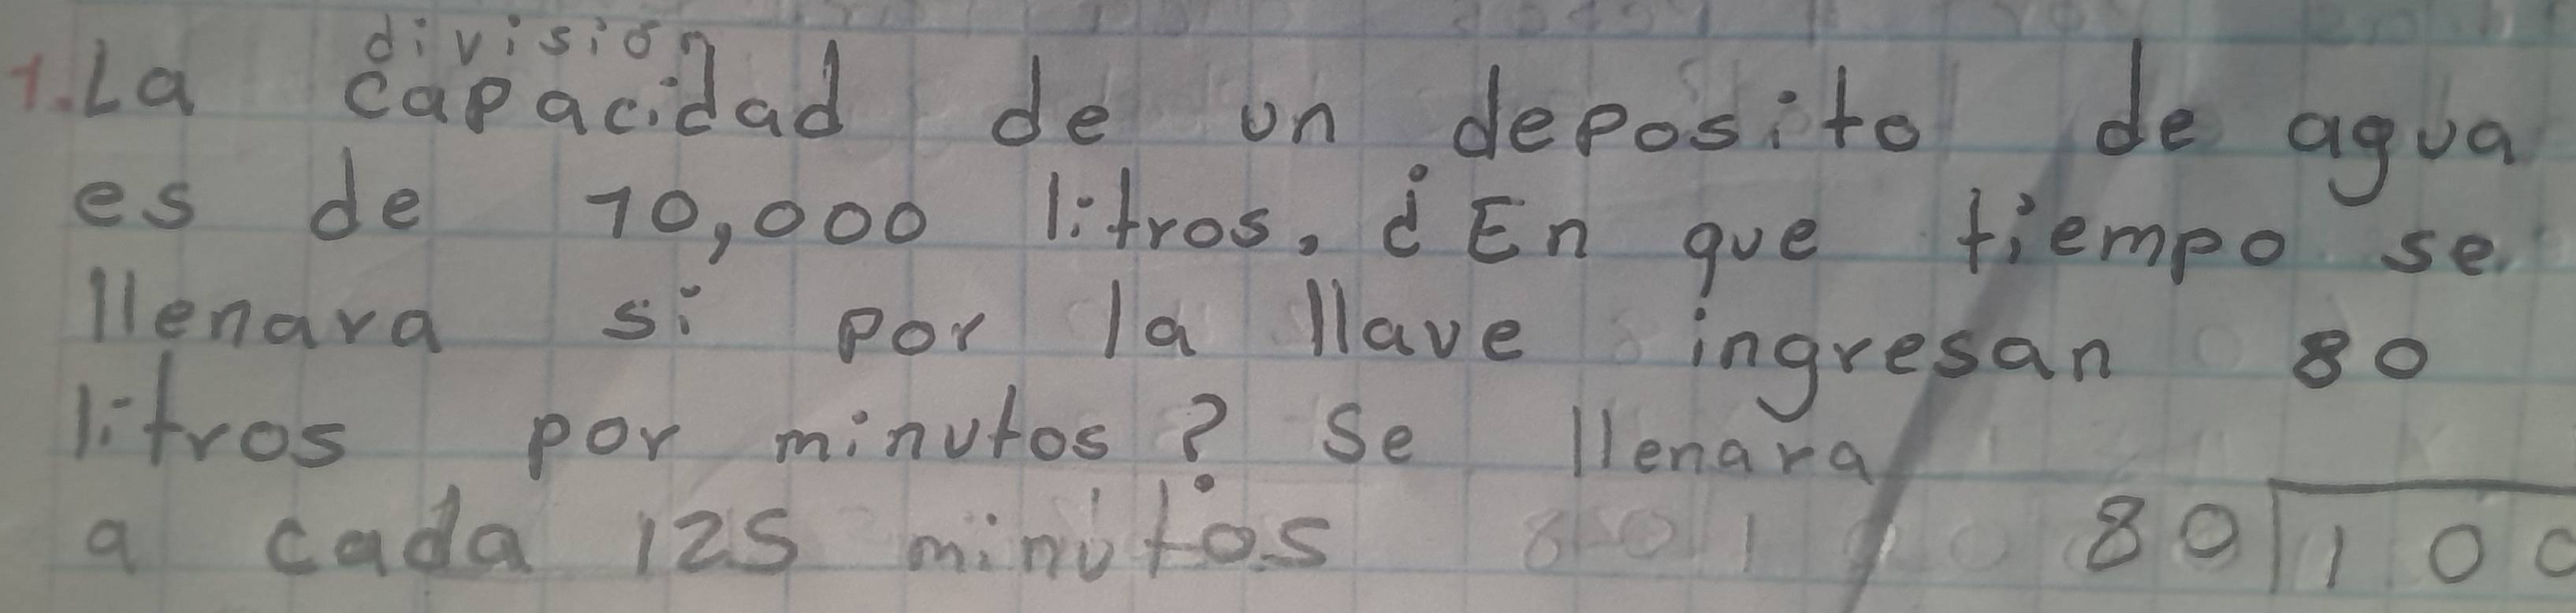 división
1. La capacidad de un deposito de agua
es de 10,000 litros. ¿En que tiempo se
llenara si por la llave ingresan 80
litros por minutos? Se llenara
a cada 125 minutos 80 100